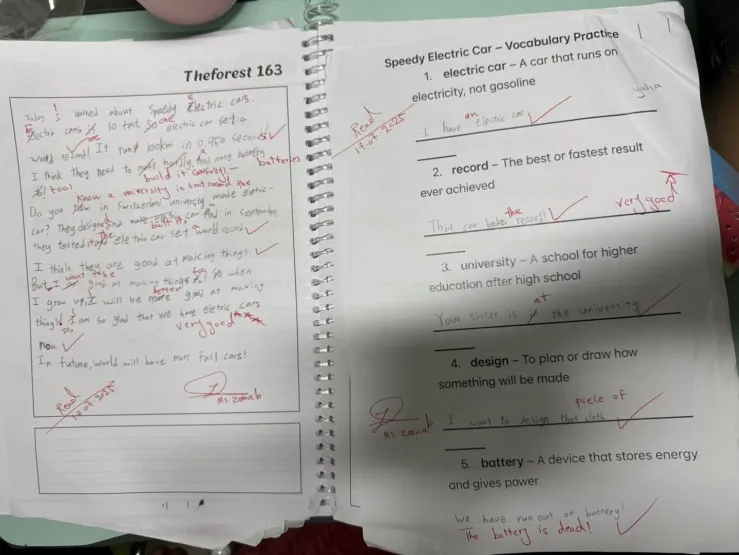 Theforest 163
Today I learned about Speedy Electric cars.
Electric cars so fast. one electric car set a
are
world record! It runs 100km in 0.956 seconds!
I think they need to make many battery
batteries
build it carefully!
too!
know a university in Switzerland the
Do you in Switzerland university made eletric
car? They designed and in September
built it,
they tested it and The eletric car set a world record
I think they are good at making things.
want to be
But I good at making things too! so when
better
I grow up, I will be good at making
things! I am so glad that we have eletric cars
very good
now.
In future, world will have more fast cars!
Read
17.07.2025
Ms. Zainab
Speedy Electric Car – Vocabulary Practice
1. electric car – A car that runs on
electricity, not gasoline
Yuha
Read
17.07.2025
an
I have electric car
2. record – The best or fastest result
ever achieved
very good
the
That car broke record!
3. university – A school for higher
education after high school
at
Your sister is in the university
4. design – To plan or draw how
something will be made
piece of
I want to design that cloth
Ms. Zainab
5. battery – A device that stores energy
and gives power
We have run out of battery!
The battery is dead!